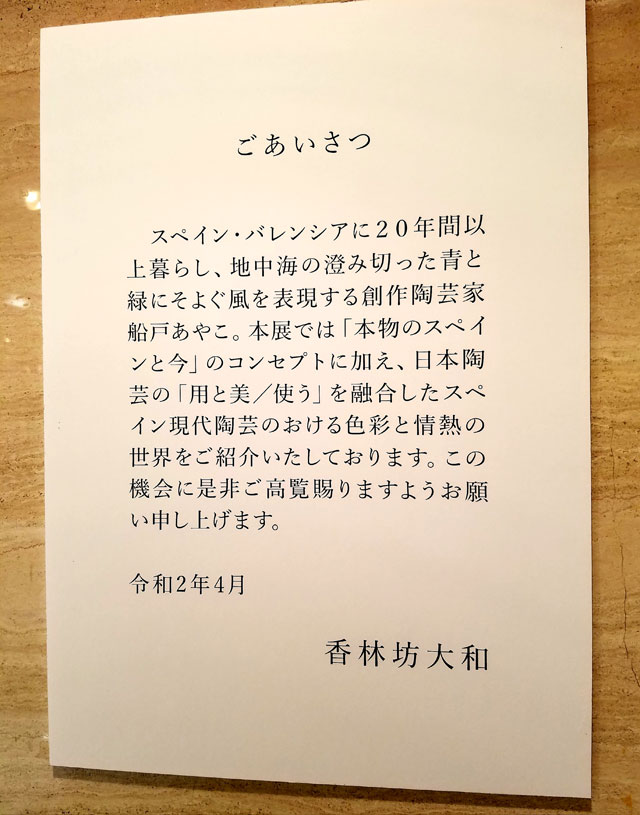 ごあいさつ
スペイン・バレンシアに20年間以
上暮らし、地中海の澄み切った青と
緑にそよぐ風を表現する創作陶芸家
船戸あやこ。本展では「本物のスペイ
ンと今」のコンセプトに加え、日本陶
芸の「用と美／使う」を融合したスペ
イン現代陶芸のおける色彩と情熱の
世界をご紹介いたしております。この
機会に是非ご高覧賜りますようお願
い申し上げます。
令和2年4月
香林坊大和